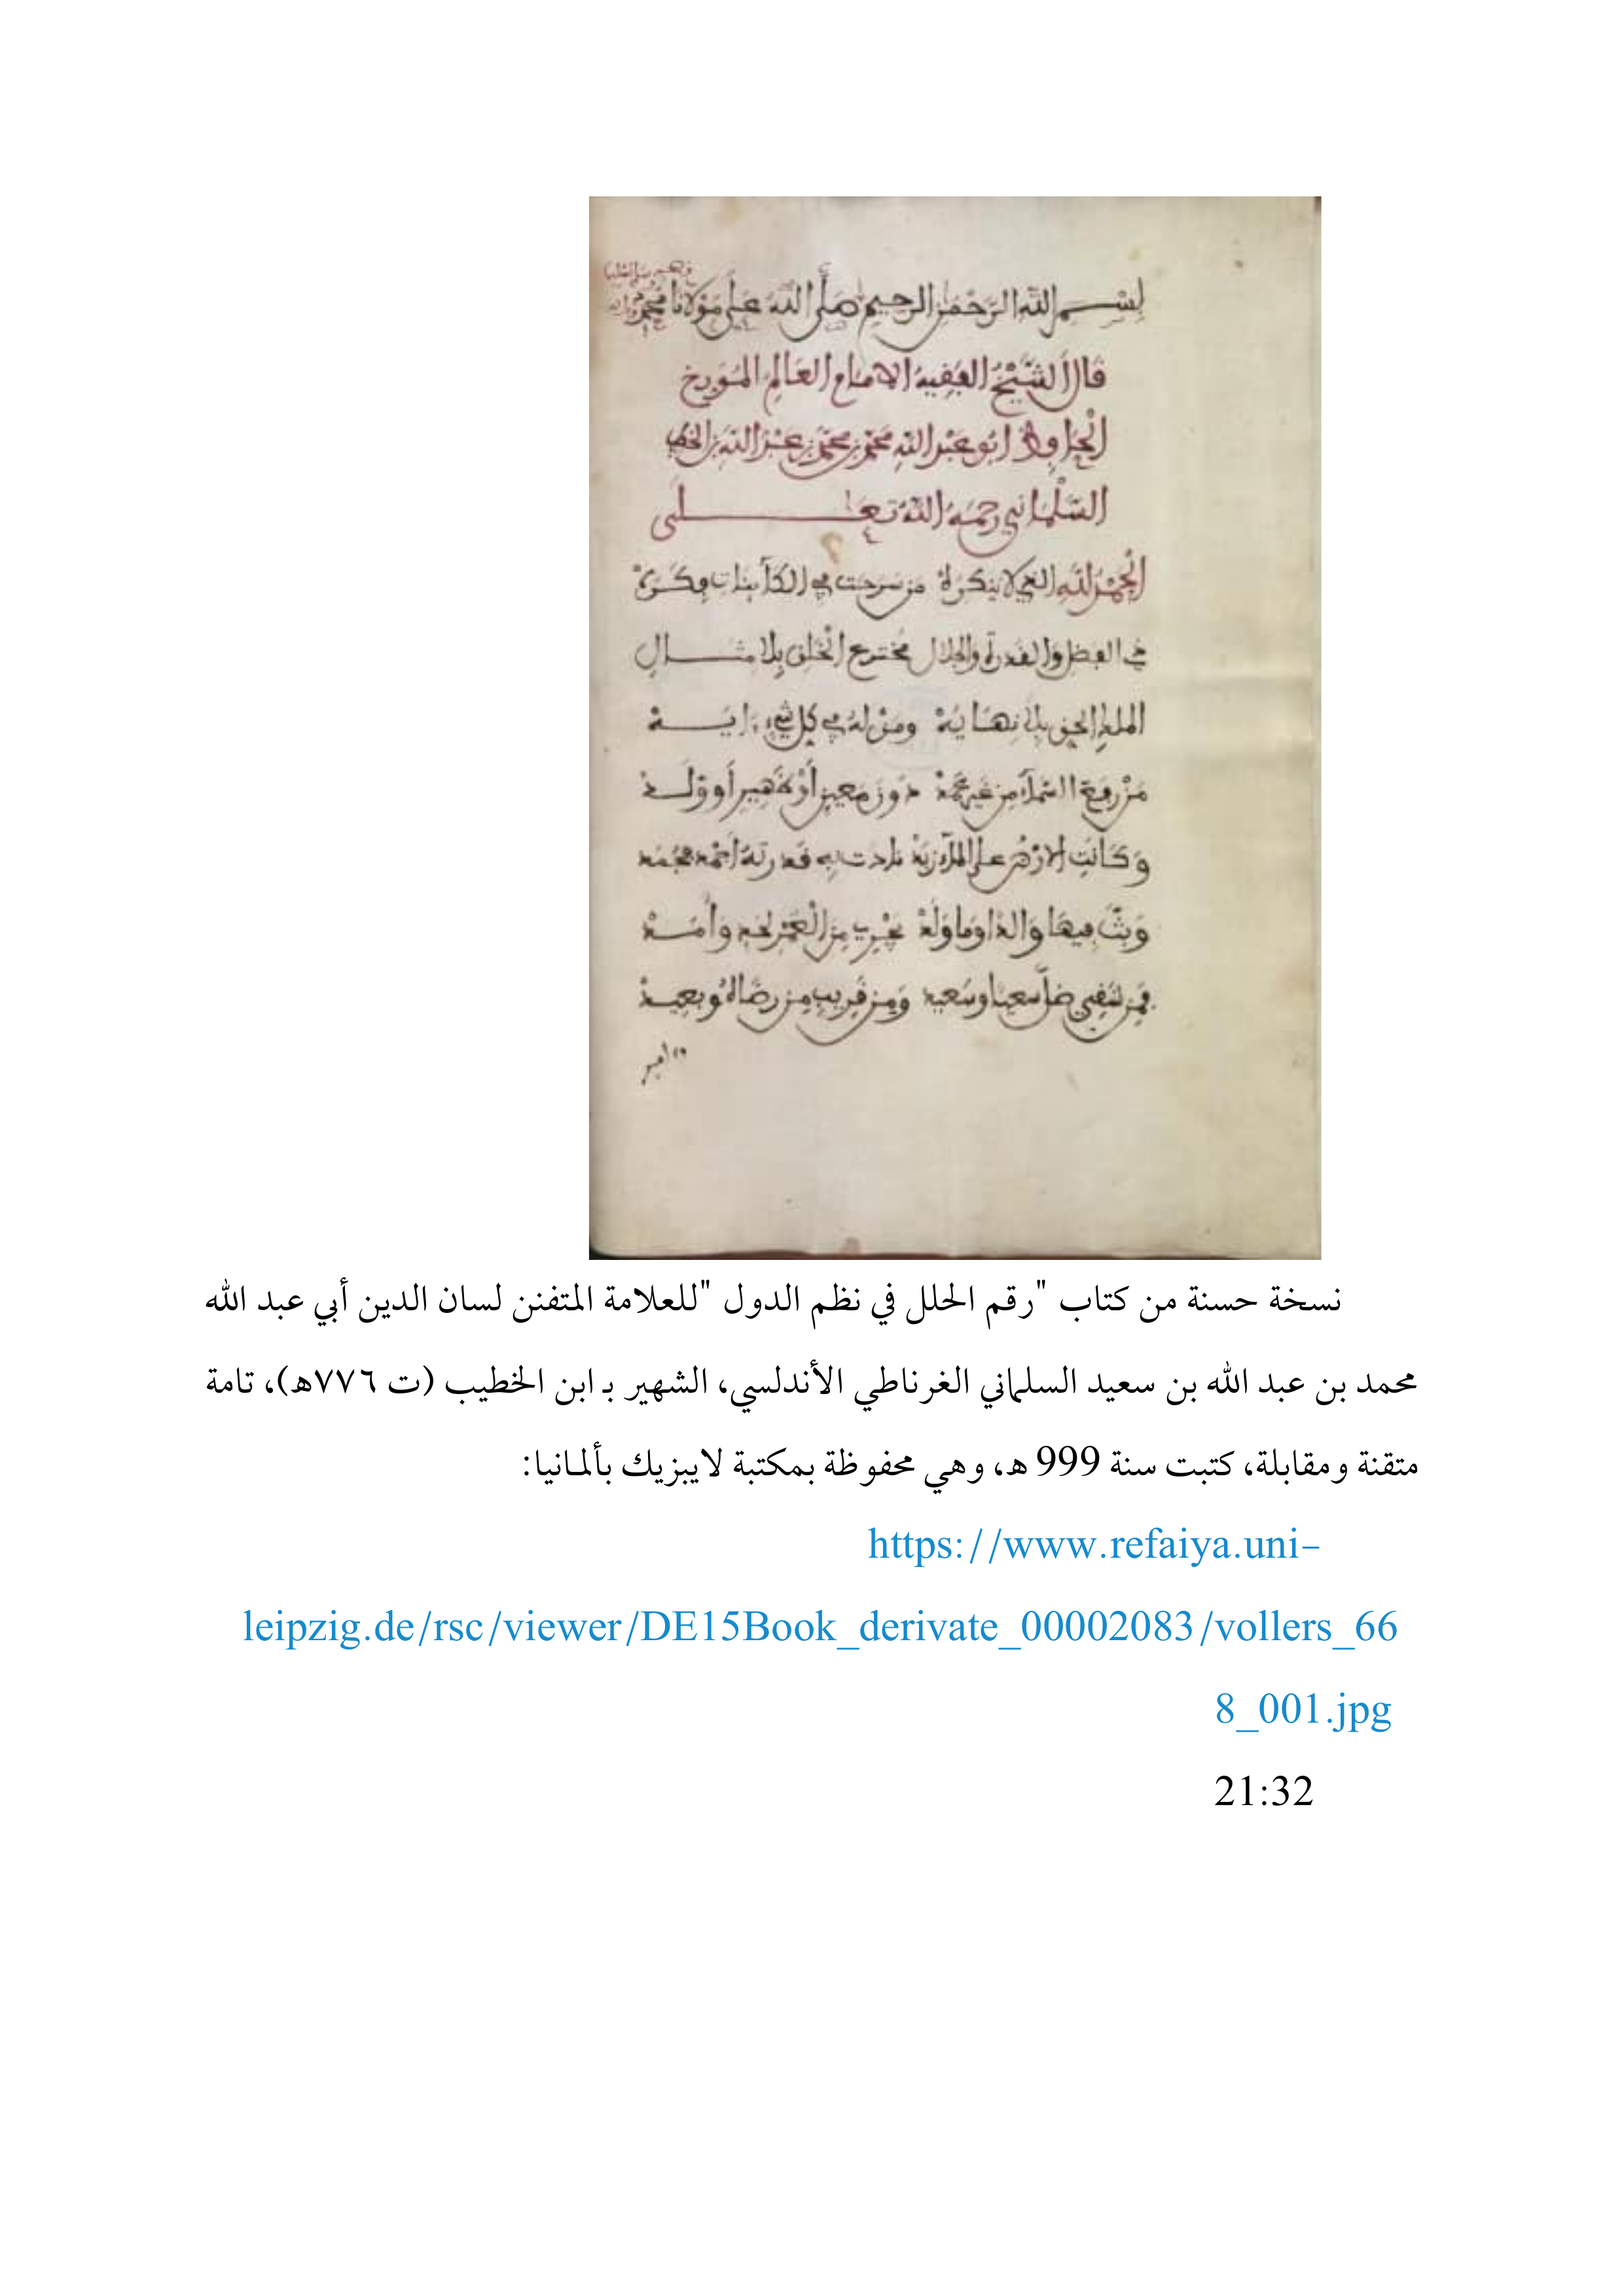 بسم الله الرحمن الرحيم صلى الله على مولانا محمد
قال الشيخ الفقيه الامام العالم المؤرخ
ابو عبد الله محمد بن محمد بن عبد الله بن الخطيب
السلماني رحمه الله تعلى
الحمد لله الذي لا ينكره من سرحت في الكاينات فكره
ذي الفضل والقدرة والجلال مخترع الخلق بلا مثال
الملك الحق بلا نهاية ومن له في كل شيء اية
من رفع السماء من غير عمد دون معين أو ظهير أو ولد
وكانت الارض على الماء زبد
وبث فيها والدا وما ولد
فمن شقي ضل سعيا وسعيد ومن قريب من رضاه وبعيد
نسخة حسنة من كتاب "رقم الحلل في نظم الدول "للعلامة المتفنن لسان الدين أبي عبد الله
محمد بن عبد الله بن سعيد السلماني الغرناطي الأندلسي، الشهير بـ ابن الخطيب (ت ٧٧٦هـ)، تامة
متقنة ومقابلة، كتبت سنة 999 هـ، وهي محفوظة بمكتبة لايبزيك بألمانيا:
https://www.refaiya.uni-
leipzig.de/rsc/viewer/DE15Book_derivate_00002083/vollers_66
8_001.jpg
21:32